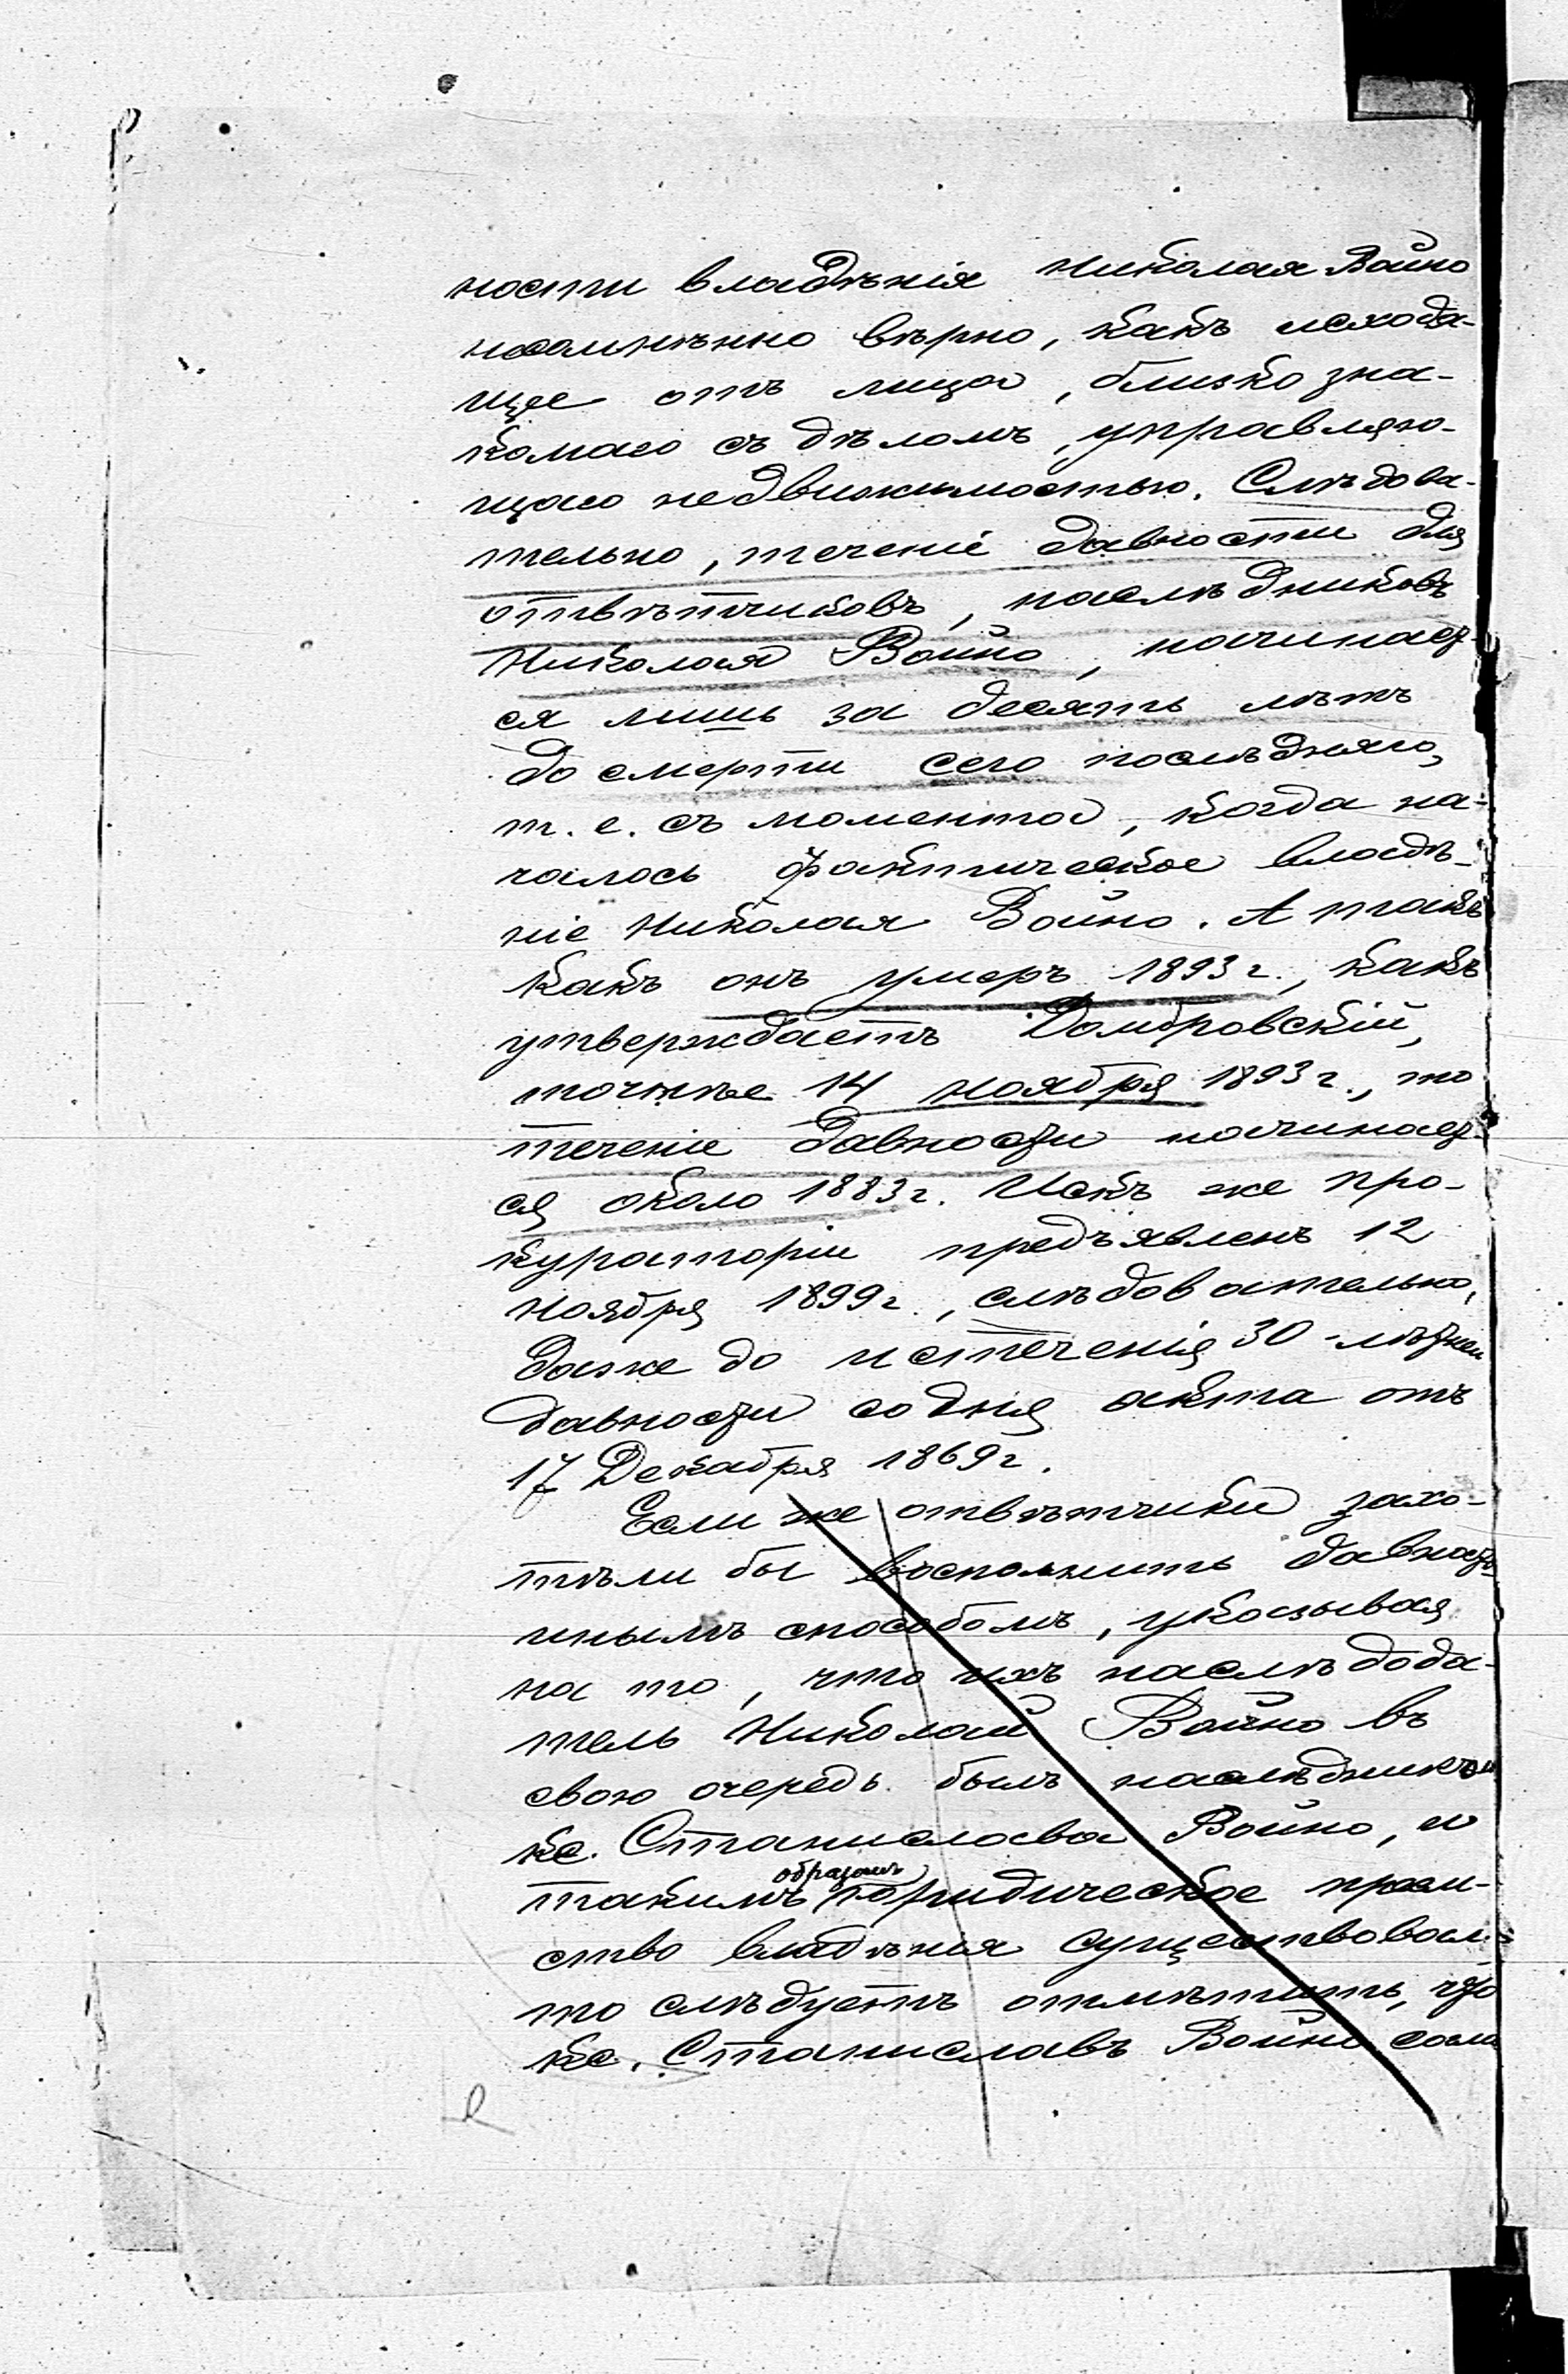 ности владѣнія Николая Война
несомнѣнно вѣрно, какъ исходя-
щее отъ лица, близко зна-
комаго съ дѣломъ, управляю-
щаго недвижимостью. Слѣдова-
тельно, теченіе давности для
отвѣтчиковъ, наслѣдниковъ
Николая Война, начинает-
ся лишь за десять лѣтъ
до смерти сего послѣдняго,
т. е. съ момента, когда на-
чалось фактическое владѣ-
ніе Николая Война. А такъ
какъ онъ умеръ 1893 г., какъ
утверждаетъ Домбровскій,
точнѣе 14 ноября 1893 г., то
теченіе давности начинает-
ся около 1883 г. Искъ же Про-
кураторіи предъявленъ 12
ноября 1899 г., слѣдовательно,
даже до истеченія 30-лѣтней
давности со дня акта отъ
17 Декабря 1869 г.
Если же отвѣтчики захо-
тѣли бы восполнить давность
инымъ способомъ, указывая
на то, что ихъ наслѣдода-
тель Николай Война въ
свою очередь былъ наслѣдникомъ
кс. Станислава Война, и
такимъ образомъ юридическое преем-
ство владѣнія существовало,
то слѣдуетъ отмѣтить, что
кс. Станиславъ Война самъ